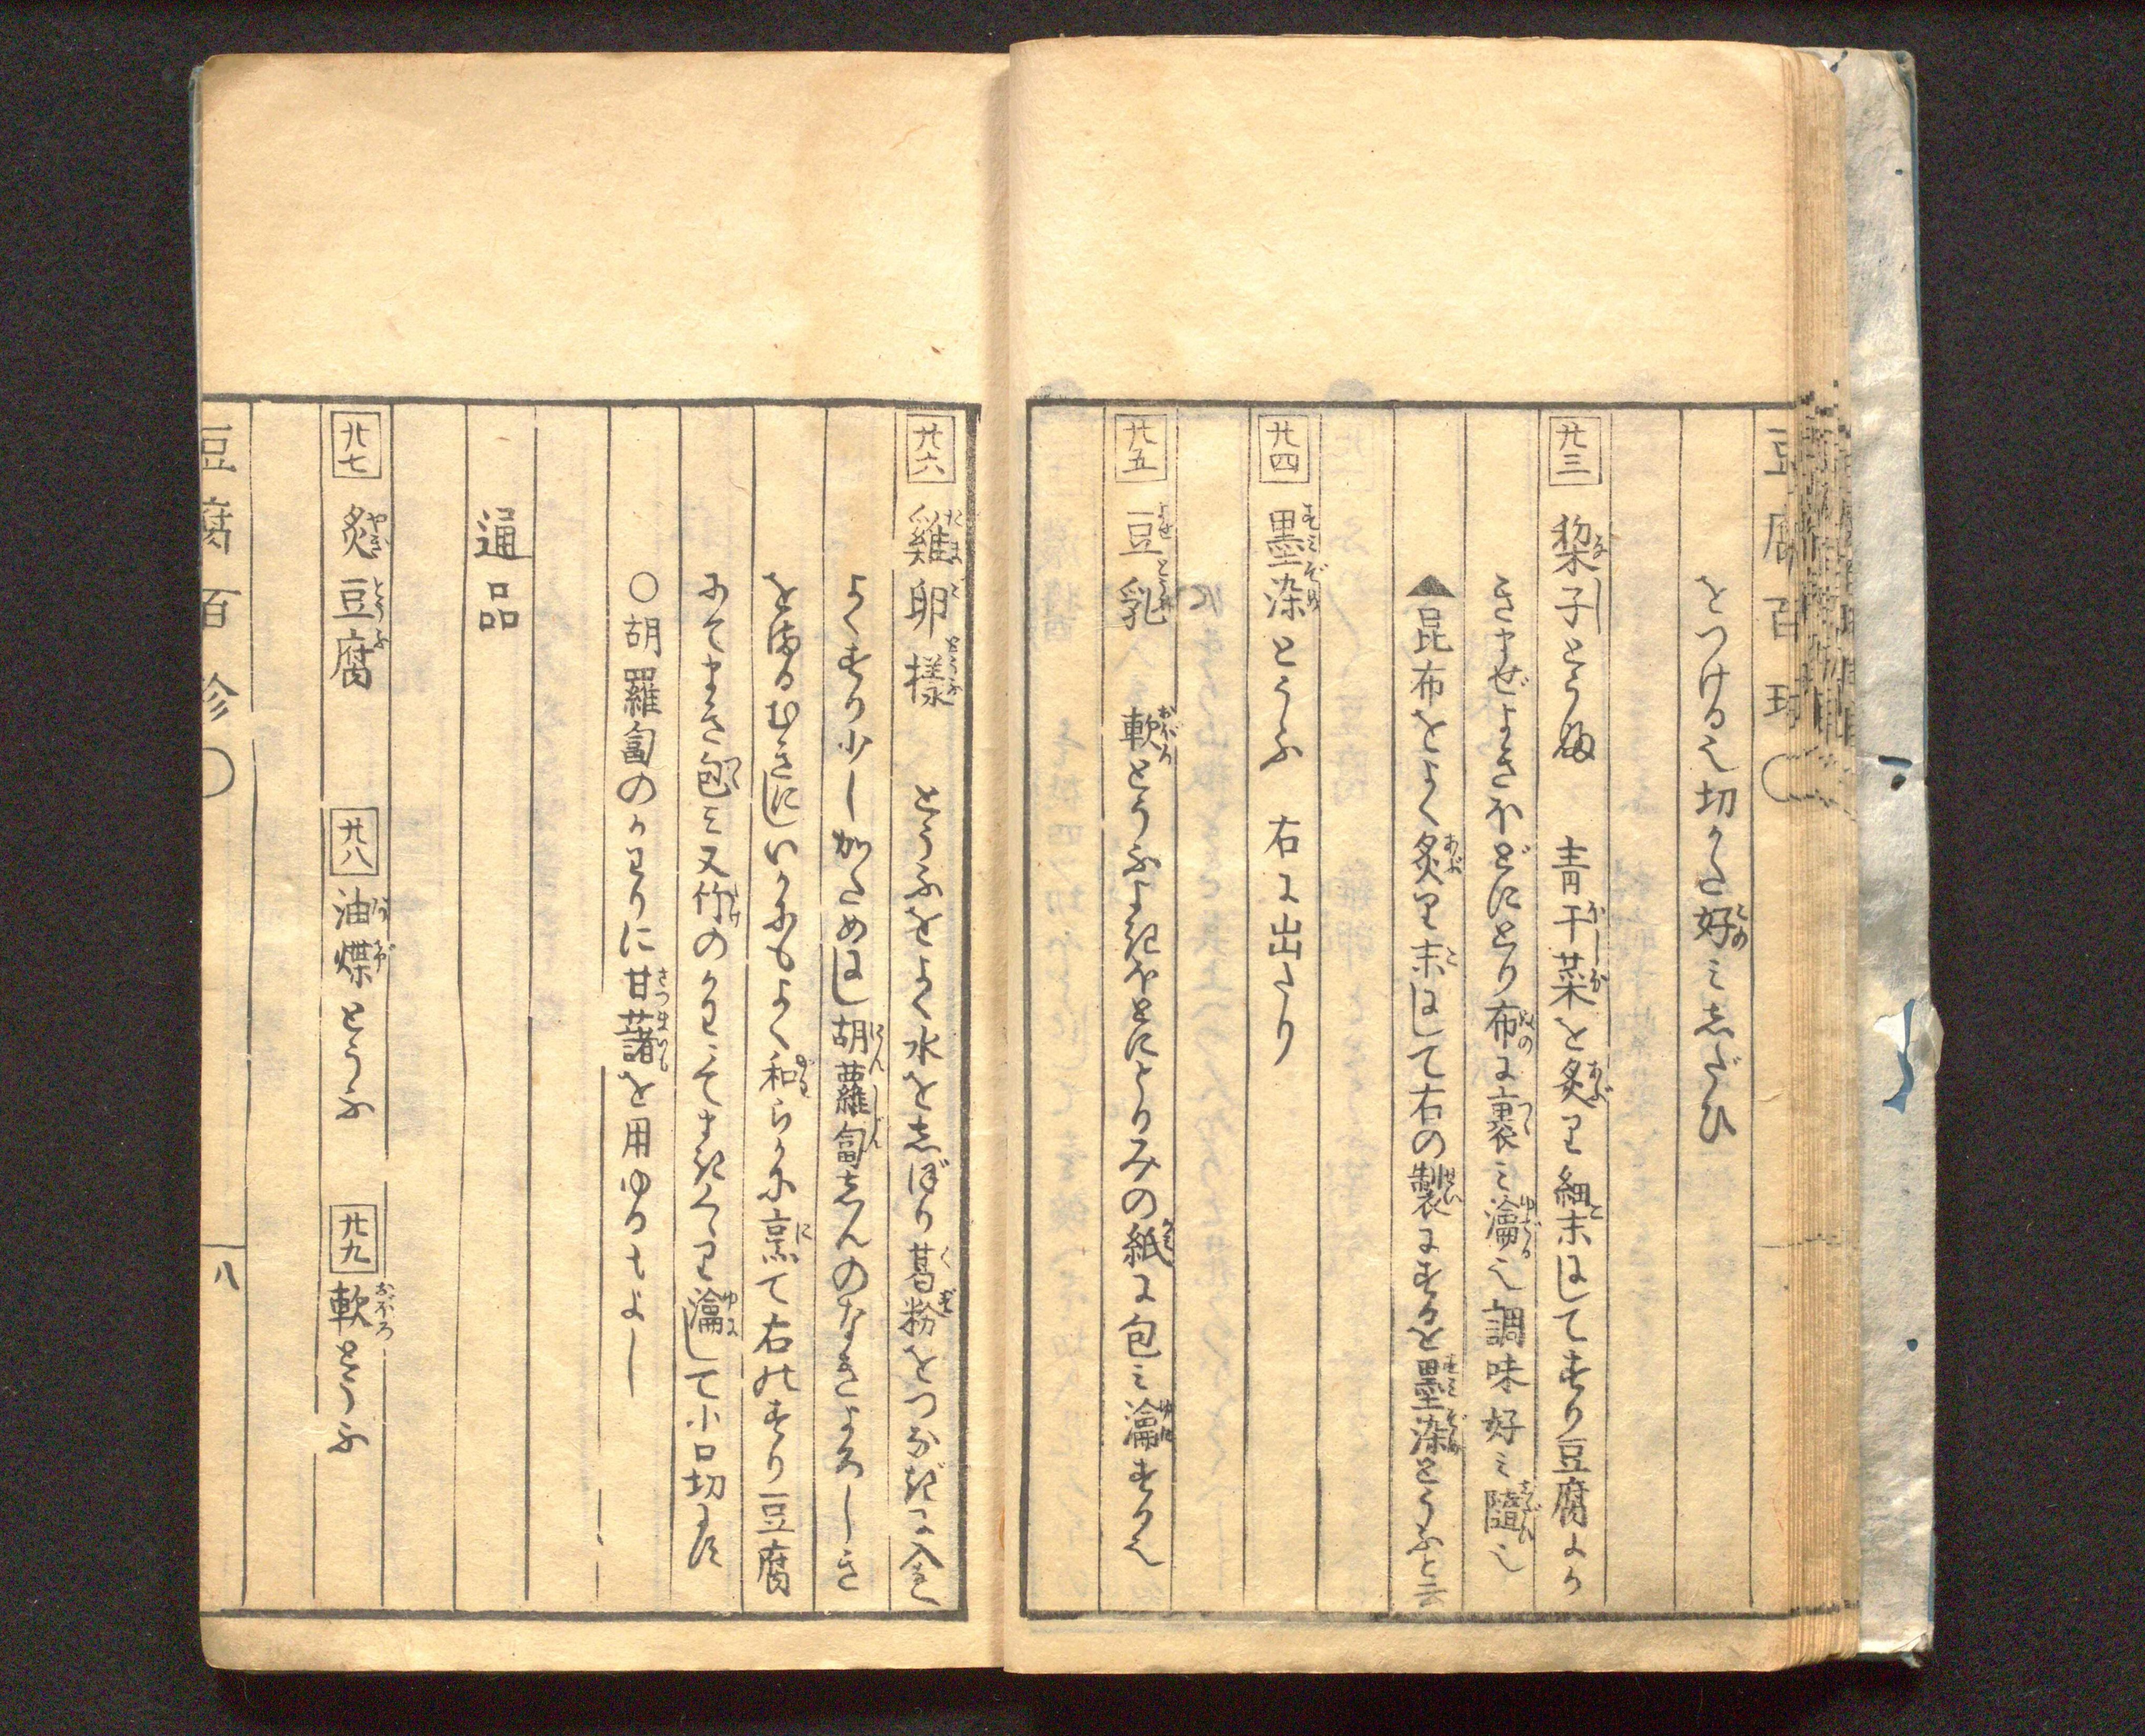 豆腐百珍
をつける也切かた好みしだひ
廿三 梨子とうふ 青干菜を炙り細末にしてすり豆腐よか
きまぜよきほどにとり布に裹み瀹る也調味好み隨ひ也
▲昆布をよく炙り末にして右の製にするを墨染とうふと云
廿四 墨染とうふ 右に出たり
廿五 豆乳 軟とうふよきほどにとりみの紙に包み瀹する也
廿六 雞卵様 とうふをよく水をしぼり葛粉をつなぎに入れ
よくすり少しかためにし胡蘿蔔しんのなきよろしき
をまるむきにしいかにもよく和らかに烹て右のすり豆腐
にてまき包み又竹のかわにてまきくゝり瀹して小口切にす
○胡羅蔔のかわりに甘藷を用ゆるもよし
通品
廿七 炙豆腐 廿八 油煠とうふ 廿九 軟とうふ
豆腐百珍 八